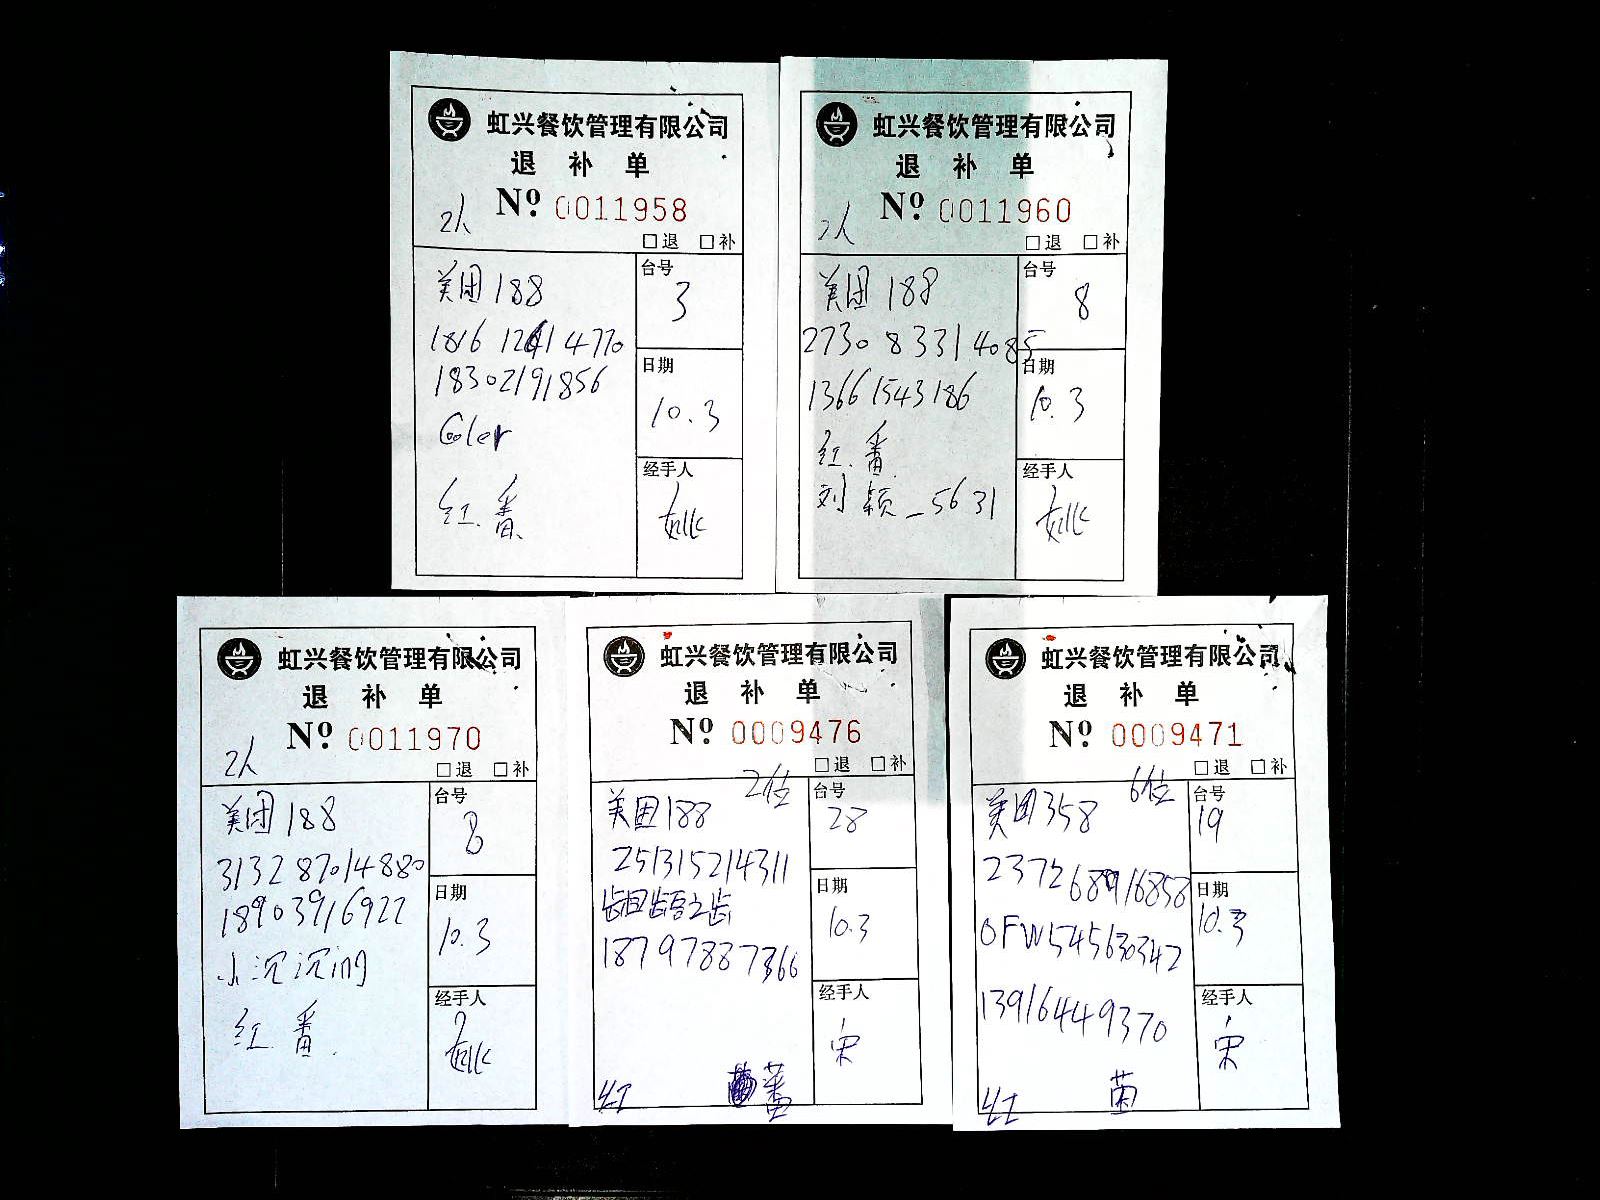 虹兴餐饮管理有限公司
退 补 单
2人 Nº 0011958
□退 □补
美团188
1816 1241 4770
18302191856
Coler
红.番
台号
3
日期
10.3
经手人
虹兴餐饮管理有限公司
退 补 单
2人 Nº 0011960
□退 □补
美团 188
2730 8331 4085
13661543186
红.番
刘颖_5631
台号
8
日期
10.3
经手人
虹兴餐饮管理有限公司
退 补 单
2人 Nº 0011970
□退 □补
美团188
3132 87014880
18903916922
小沉沉
红.番.
台号
8
日期
10.3
经手人
虹兴餐饮管理有限公司
退 补 单
Nº 0009476
□退 □补
2位
美团188
251315214311
龃龉之齿
18797887366
红 蕃
台号
28
日期
10.3
经手人
宋
虹兴餐饮管理有限公司
退 补 单
Nº 0009471
□退 □补
6位
美团358
237268916858
OFW545630342
13916449370
红 菌
台号
19
日期
10.3
经手人
宋